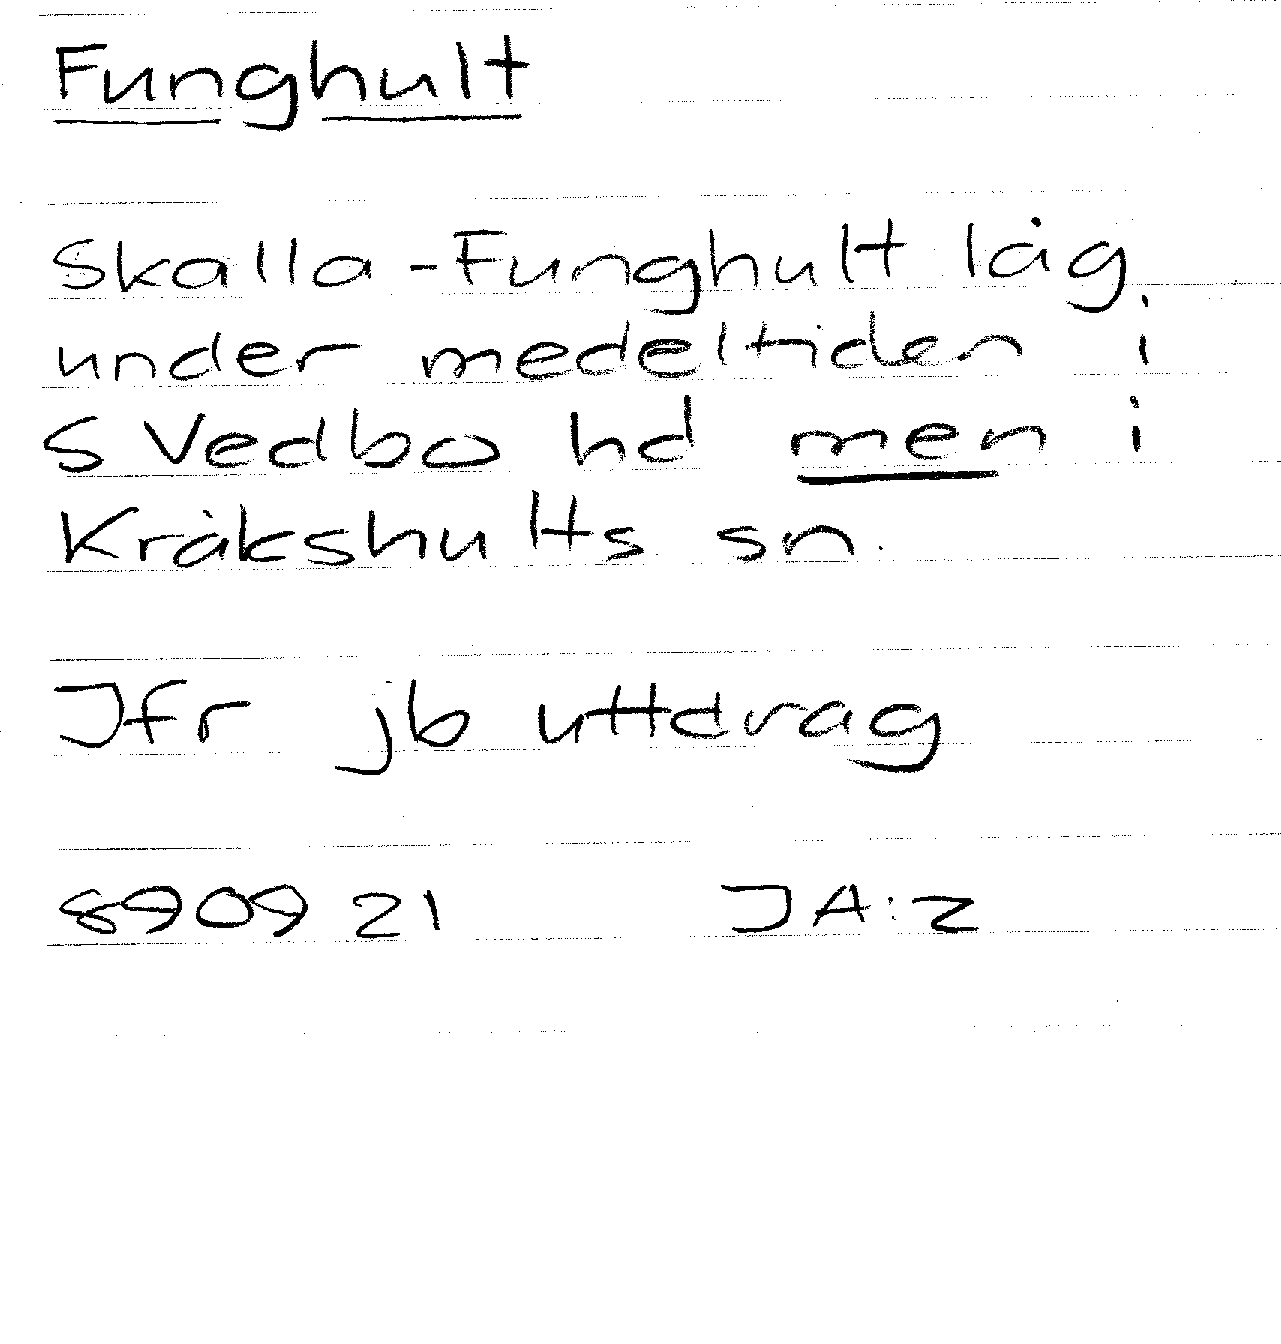 Funghult
Skalla-Funghult låg
under medeltiden i
S Vedbo hd men i
Kråkshults sn.
Jfr jb uttdrag
890921 JA:2